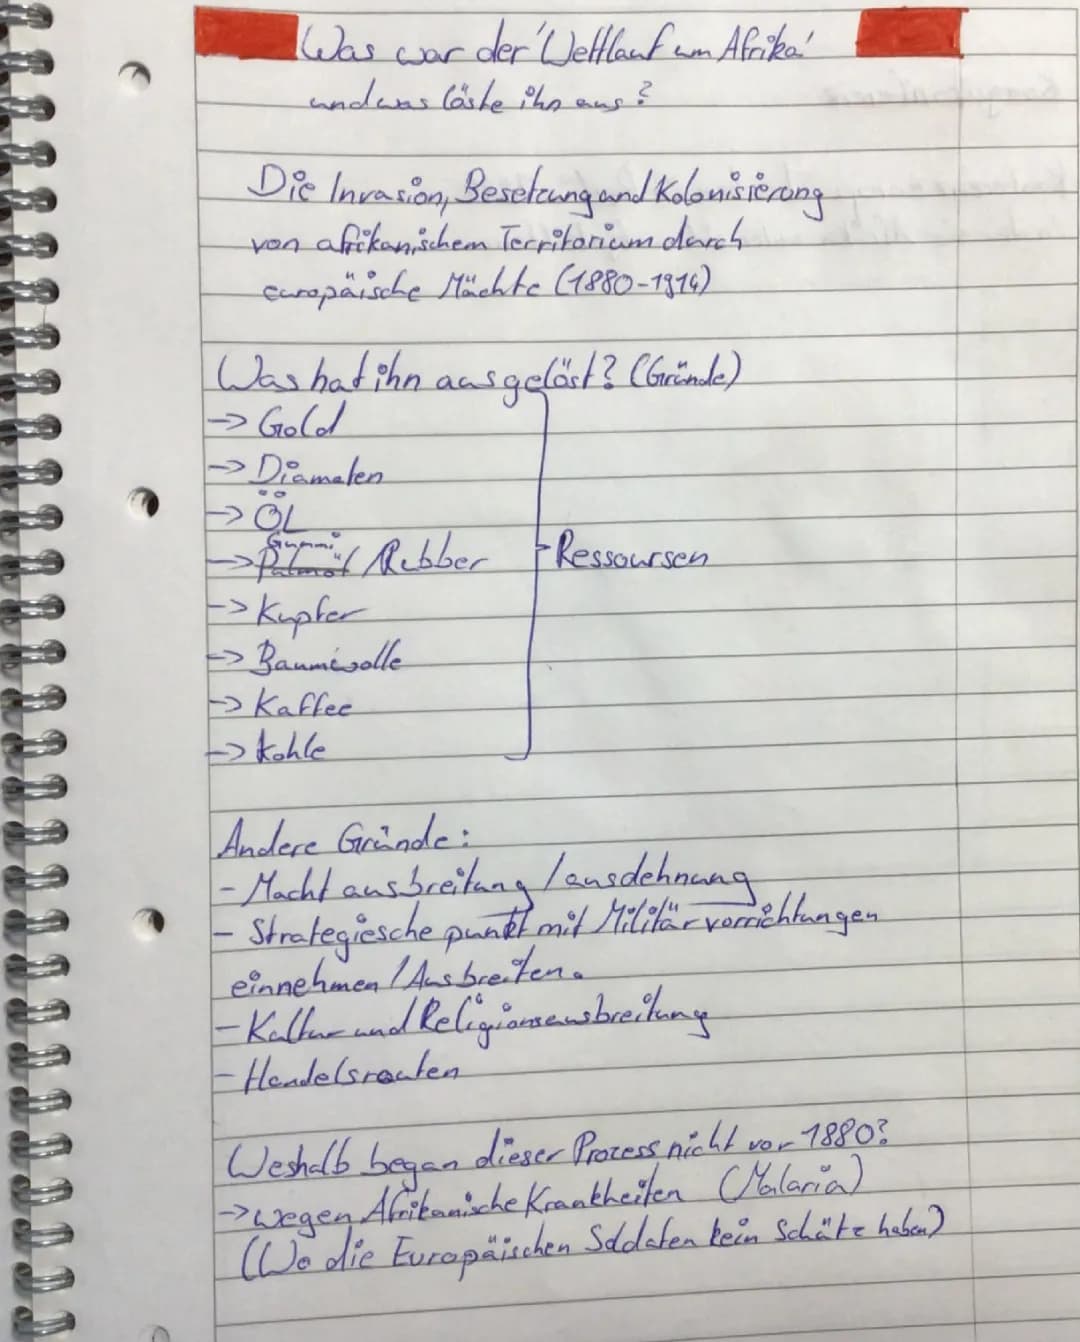 Was war der 'Wettlauf um Afrika'
und was löste ihn aus?
Die Invasion, Besetzung und Kolonisierung
von afrikanischem Territorium durch
europäische Mächte (1880-1914)
Was hat ihn ausgelöst? (Gründe)
→ Gold
→ Diamaten
→ ÖL
Gummi
→ Palmöl / Rubber
Ressoursen
→ Kupfer
→ Baumwolle
→ Kaffee
→ Kohle
Andere Gründe:
- Macht ausbreitung / ausdehnung
- Strategiesche punkt mit Militärvorrichtungen
einnehmen / Ausbreiten.
- Kultur und Religionsausbreitung
- Handelsrouten
Weshalb began dieser Prozess nicht vor 1880?
→ wegen Afrikanische Krankheiten (Malaria)
(Wo die Europäischen Soldaten kein Schütz haben)